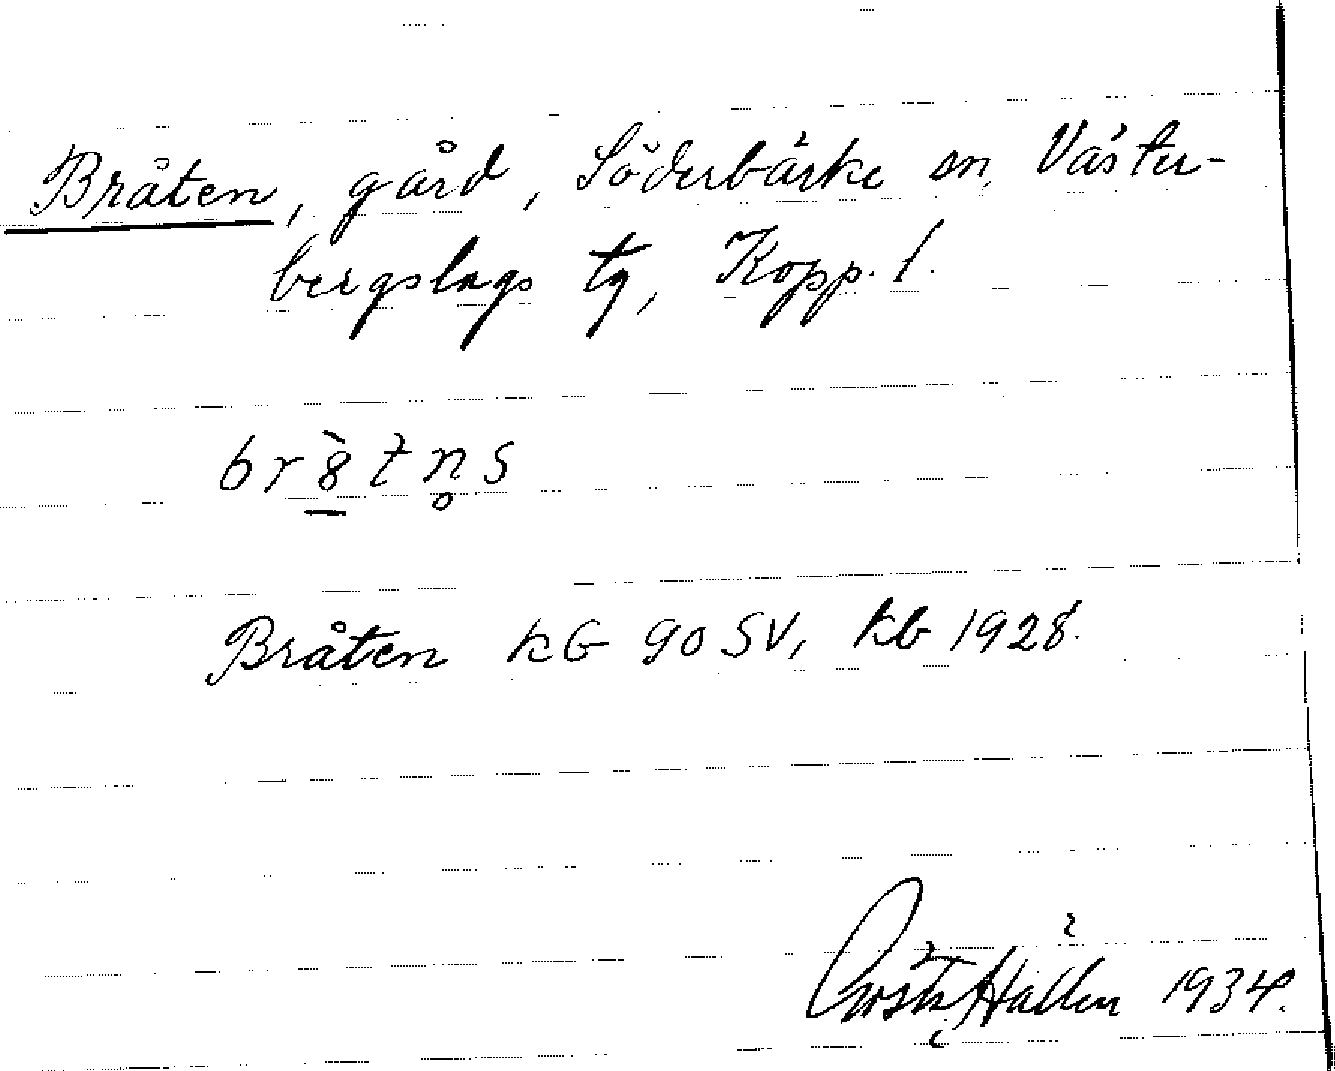 Bråten, gård, Söderbärke sn, Väster-
bergslags tg, Kopp. l.
br8̀tn̥s
Bråten kG 90 SV, kb 1928.
Gösta Hallén 1934.